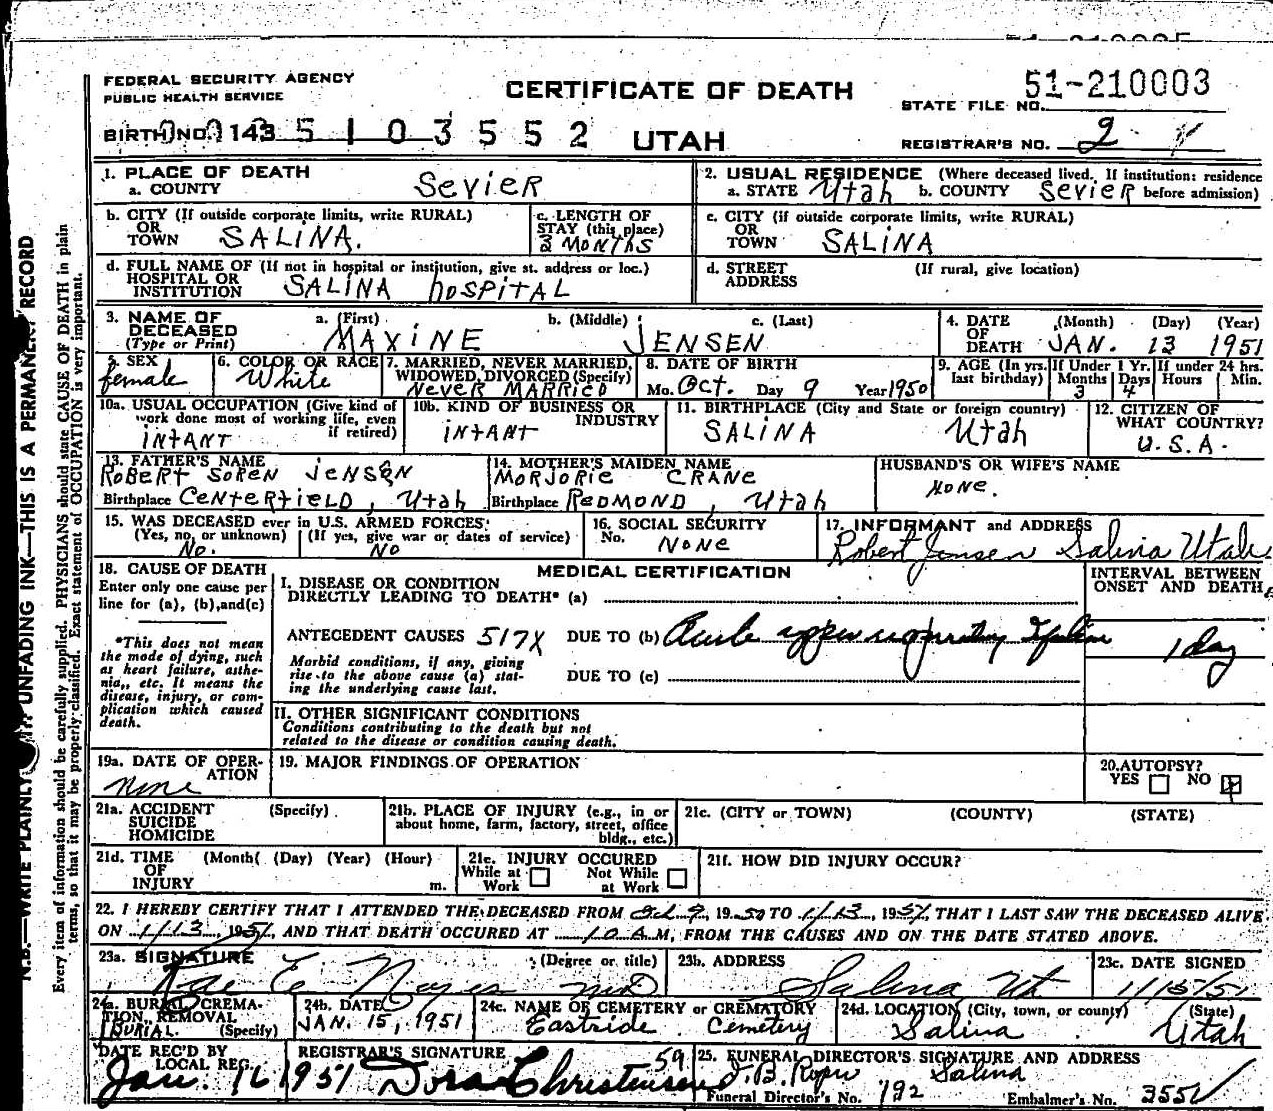 FEDERAL SECURITY AGENCY
PUBLIC HEALTH SERVICE
CERTIFICATE OF DEATH
51-210003
STATE FILE NO.
BIRTH NO. 143 5 1 0 3 5 5 2
UTAH
REGISTRAR'S NO. 2
1. PLACE OF DEATH
a. COUNTY SEVIER
2. USUAL RESIDENCE (Where deceased lived. If institution: residence
a. STATE Utah b. COUNTY SEVIER before admission)
b. CITY (If outside corporate limits, write RURAL)
OR
TOWN SALINA.
c. LENGTH OF
STAY (this place)
3 MONTHS
c. CITY (if outside corporate limits, write RURAL)
OR
TOWN SALINA
d. FULL NAME OF (If not in hospital or institution, give st. address or loc.)
HOSPITAL OR
INSTITUTION SALINA HOSPITAL
d. STREET (If rural, give location)
ADDRESS
3. NAME OF DECEASED (Type or Print)
a. (First) b. (Middle) c. (Last)
MAXINE JENSEN
4. DATE OF DEATH (Month) (Day) (Year)
JAN. 13 1951
5. SEX
female
6. COLOR OR RACE
White
7. MARRIED, NEVER MARRIED,
WIDOWED, DIVORCED (Specify)
NEVER MARRIED
8. DATE OF BIRTH
Mo. Oct. Day 9 Year 1950
9. AGE (In yrs. last birthday)
If Under 1 Yr. Months 3 Days 4
If under 24 hrs. Hours Min.
10a. USUAL OCCUPATION (Give kind of
work done most of working life, even
if retired)
INFANT
10b. KIND OF BUSINESS OR
INDUSTRY
INFANT
11. BIRTHPLACE (City and State or foreign country)
SALINA Utah
12. CITIZEN OF
WHAT COUNTRY?
U.S.A.
13. FATHER'S NAME
ROBERT SOREN JENSEN
Birthplace CENTERFIELD, Utah
14. MOTHER'S MAIDEN NAME
MORJORIE CRANE
Birthplace REDMOND, Utah
HUSBAND'S OR WIFE'S NAME
NONE.
15. WAS DECEASED ever in U.S. ARMED FORCES?
(Yes, no, or unknown) (If yes, give war or dates of service)
No. NO
16. SOCIAL SECURITY
No. NONE
17. INFORMANT and ADDRESS
Robert Jensen Salina Utah
18. CAUSE OF DEATH
Enter only one cause per
line for (a), (b), and (c)
*This does not mean
the mode of dying, such
as heart failure, asthe-
nia,, etc. It means the
disease, injury, or com-
plication which caused
death.
MEDICAL CERTIFICATION
I. DISEASE OR CONDITION
DIRECTLY LEADING TO DEATH* (a)
INTERVAL BETWEEN
ONSET AND DEATH
ANTECEDENT CAUSES 517X DUE TO (b) Acute upper respiratory
1 day
Morbid conditions, if any, giving
rise to the above cause (a) stat-
ing the underlying cause last.
DUE TO (c)
II. OTHER SIGNIFICANT CONDITIONS
Conditions contributing to the death but not
related to the disease or condition causing death.
19a. DATE OF OPER-
ATION
None
19. MAJOR FINDINGS OF OPERATION
20. AUTOPSY?
YES NO
21a. ACCIDENT (Specify)
SUICIDE
HOMICIDE
21b. PLACE OF INJURY (e.g., in or
about home, farm, factory, street, office
bldg., etc.)
21c. (CITY or TOWN) (COUNTY) (STATE)
21d. TIME (Month( (Day) (Year) (Hour)
OF
INJURY m.
21e. INJURY OCCURED
While at Work Not While at Work
21f. HOW DID INJURY OCCUR?
22. I HEREBY CERTIFY THAT I ATTENDED THE DECEASED FROM Oct 9, 1950 TO 1/13, 1951, THAT I LAST SAW THE DECEASED ALIVE
ON 1/13, 1951, AND THAT DEATH OCCURED AT 10 A M, FROM THE CAUSES AND ON THE DATE STATED ABOVE.
23a. SIGNATURE (Degree or title)
Rae E. Noyes MD
23b. ADDRESS
Salina Ut
23c. DATE SIGNED
1/15/51
24a. BURIAL, CREMA-
TION, REMOVAL
(Specify)
BURIAL.
24b. DATE
JAN. 15, 1951
24c. NAME OF CEMETERY or CREMATORY
Eastside Cemetery
24d. LOCATION (City, town, or county) (State)
Salina Utah
DATE REC'D BY
LOCAL REG.
Jan. 16 1951
REGISTRAR'S SIGNATURE 59
Dora Christensen
25. FUNERAL DIRECTOR'S SIGNATURE AND ADDRESS
Salina
Funeral Director's No. 192 Embalmer's No. 355
N.B.—WRITE PLAINLY UNFADING INK—THIS IS A PERMANENT RECORD
Every item of information should be carefully supplied. PHYSICIANS should state CAUSE OF DEATH in plain
terms, so that it may be properly classified. Exact statement of OCCUPATION is very important.